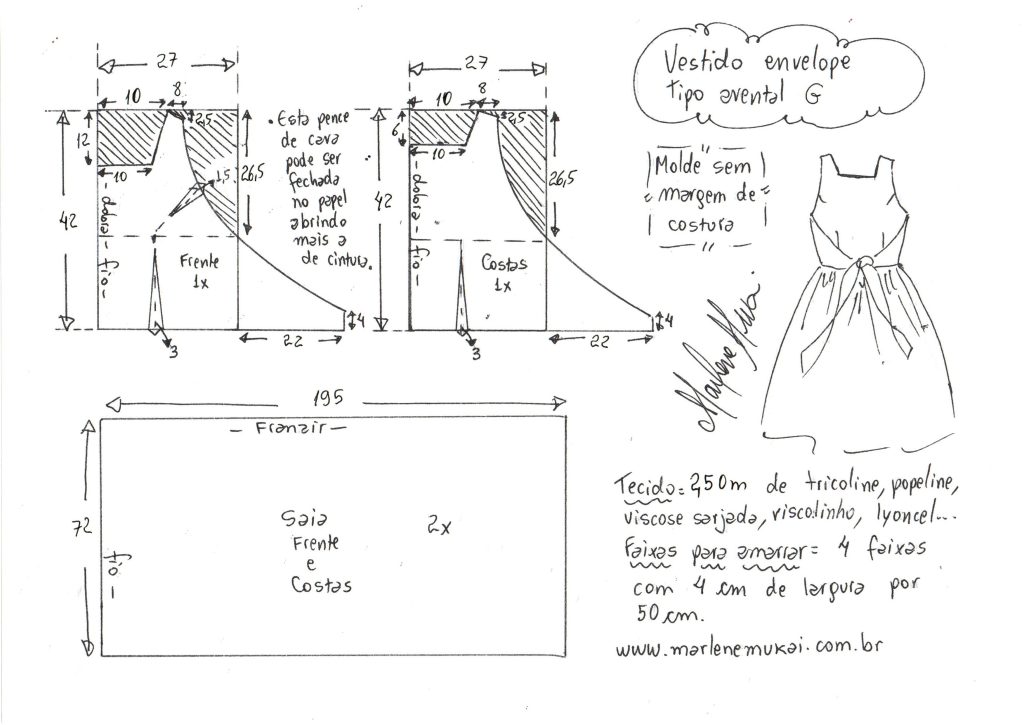 Vestido envelope
Tipo avental G
27
10
8
2,5
12
10
1,5
26,5
42
- dobra - fio -
Frente
1x
4
3
22
• Esta pence
de cava
pode ser
fechada
no papel
abrindo
mais a
de cintura.
27
10
8
2,5
6
10
26,5
42
- dobra - fio -
Costas
1x
4
3
22
Molde sem
margem de
costura
Marlene Mukai
195
- Franzir -
72
fio -
Saia
Frente
e
Costas
2x
Tecido = 2,50m de tricoline, popeline,
viscose sarjada, viscolinho, lyoncel...
Faixas para amarrar = 4 faixas
com 4 cm de largura por
50 cm.
www.marlenemukai.com.br